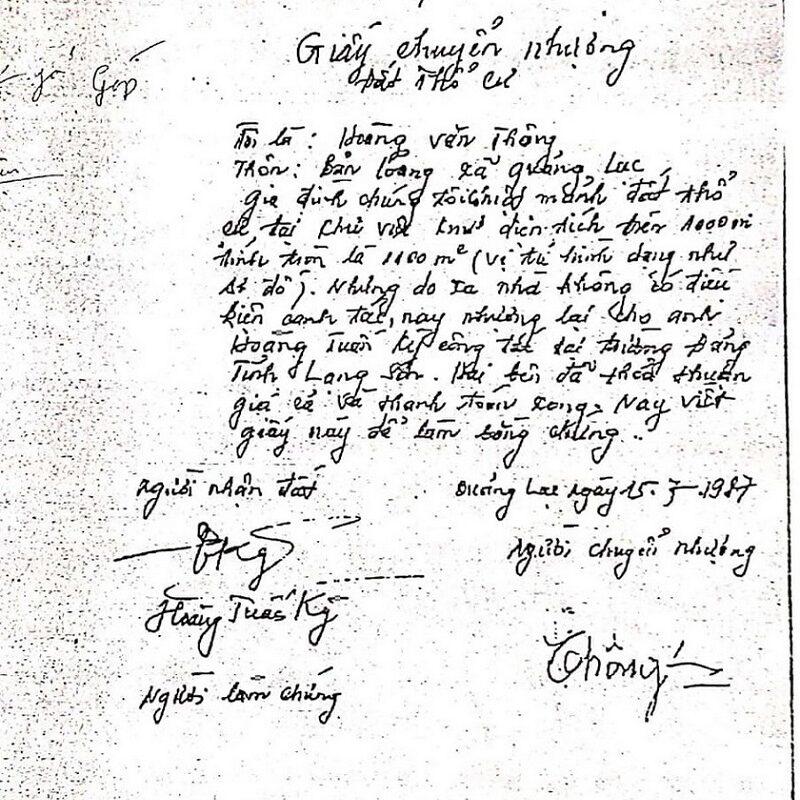 Giấy chuyển nhượng
Đất Thổ cư
Tôi là: Hoàng Văn Thông
Thôn: Bản Loỏng xã Quảng Lạc
gia đình chúng tôi có mảnh đất thổ
cư, tại khu vực diện tích trên 1000 m
tính tròn là 1100 m² (vị trí hình dạng như
sơ đồ). Nhưng do xa nhà không có điều
kiện canh tác, nay nhượng lại cho anh
Hoàng Tuấn Kỳ công tác tại trường Đảng
Tỉnh Lạng Sơn. Hai bên đã thoả thuận
giá cả và thanh toán xong, Nay viết
giấy này để làm bằng chứng..
Người nhận đất
Quảng Lạc ngày 15. 1987
Người chuyển nhượng
Hoàng Tuấn Kỳ
Thông
Người làm chứng